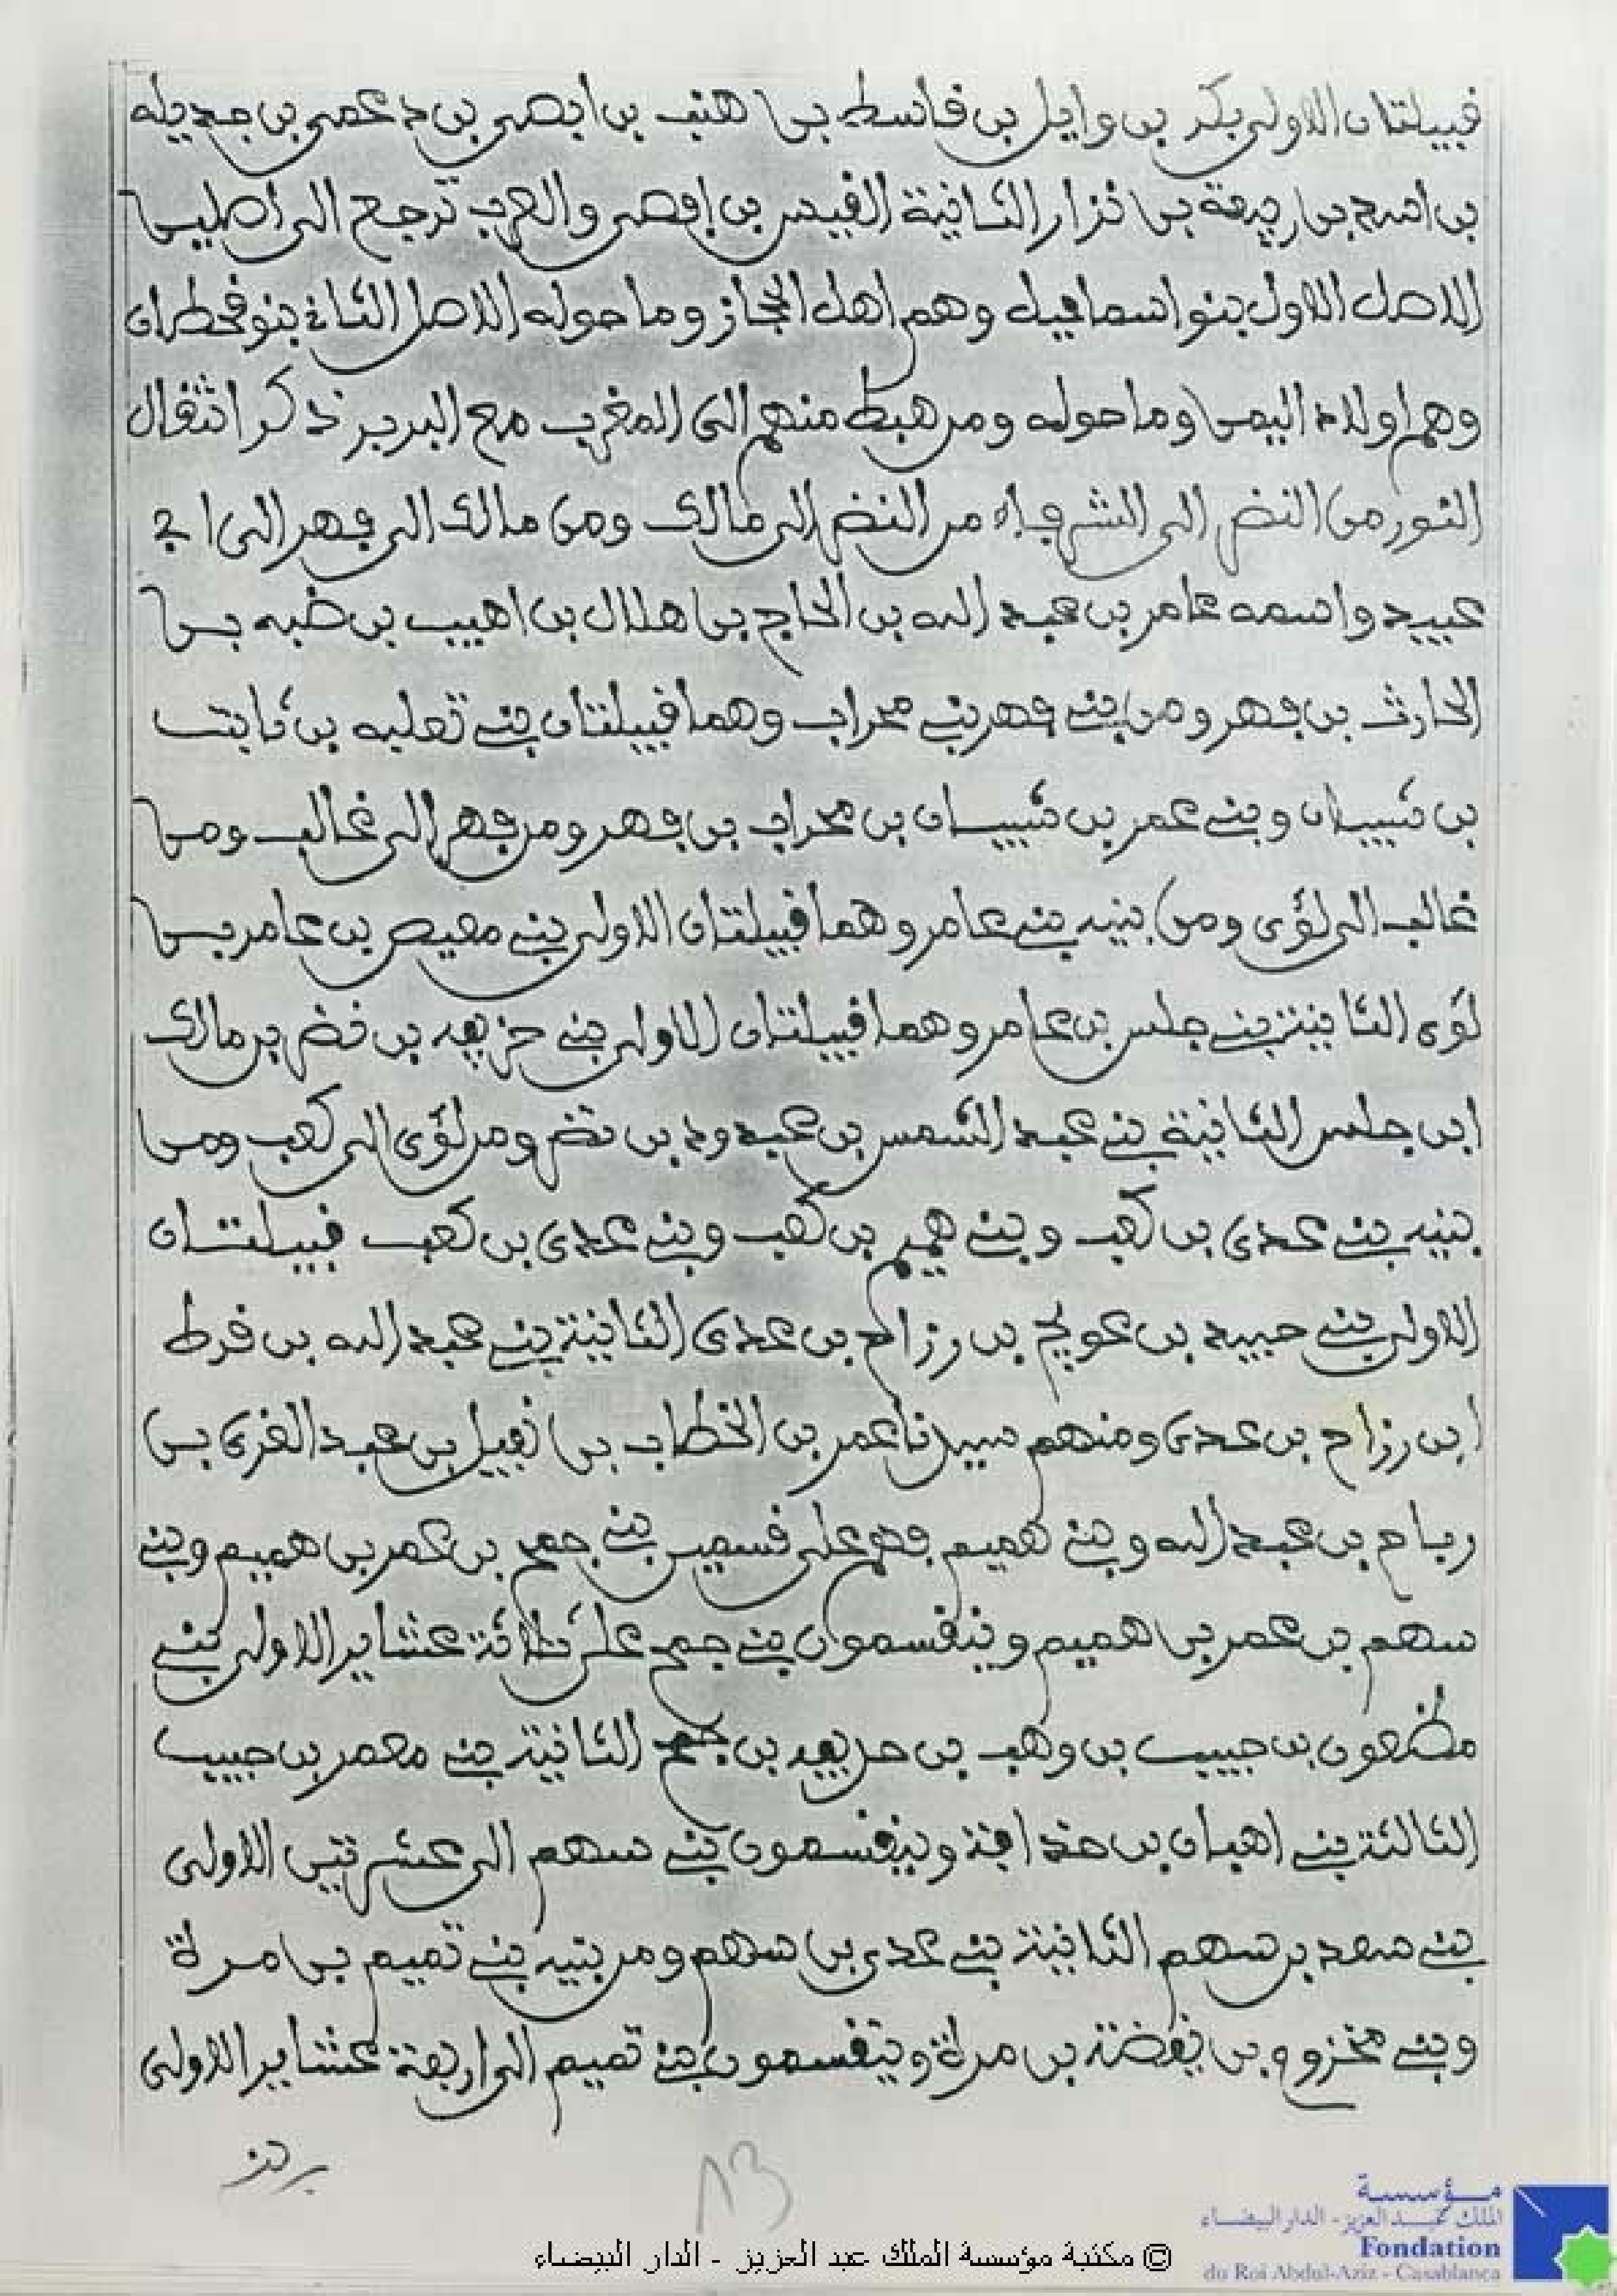 قبيلتان الاولى بكر بن وايل بن قاسط بن هنب بن ابصى بن دعمى بن جديله
بن اسد بن ربيعة بن نزار الثانية القيس بن افصى والعرب ترجع الى اصليين
الاصل الاول بنو اسماعيل وهم اهل الحجاز وما حوله الاصل الثاني بنو قحطان
وهم اولاد اليمن وما حوله ومن هبط منهم الى المغرب مع البربر ذكر انتقال
النور من النضر الى الشرفاء من النضر الى مالك ومن مالك الى فهر الى ابي
عبيد واسمه عامر بن عبد الله بن الجاح بن هلال بن اهيب بن ضبه بن
الحارث بن فهر ومن بني فهر بني محراب وهما قبيلتان بني تعلبه بن ثابت
بن شيبان وبني عمر بن شيبان بن محراب بن فهر ومن فهر الى غالب ومن
غالب الى لؤي ومن بنيه بني عامر وهما قبيلتان الاولى بني معيص بن عامر بن
لؤي الثانية بني جلس بن عامر وهما قبيلتان الاولى بني خزيمه بن نضر بن مالك
ابن جلس الثانية بني عبد الشمس بن عبدود بن نضر ومن لؤي الى كعب ومن
بنيه بني عدى بن كعب وبني هميم بن كعب وبني عدى بن كعب قبيلتان
الاولى بني حبيد بن عويج بن رزاح بن عدى الثانية بني عبد الله بن قرط
ابن رزاح بن عدى ومنهم سيدنا عمر بن الخطاب بن نفيل بن عبد العزى بن
رباح بن عبد الله وبني هميم فهم على قسمين بني جمح بن عمر بن هميم وبني
سهم بن عمر بن هميم وينقسمون بني جمح على ثلاثة عشاير الاولى بني
مظعون بن حبيب بن وهب بن حذيفه بن جمح الثانية بني معمر بن حبيب
الثالثة بني اهبان بن حذافة وينقسمون بني سهم الى عشرتين الاولى
بني سعد بن سهم الثانية بني عدى بن سهم ومن بنيه بني تميم بن مرة
وبني مخزوم بن يقضة بن مرة وينقسمون بني تميم الى اربعة عشاير الاولى
٨٣
© مكتبة مؤسسة الملك عبد العزيز - الدار البيضاء
مؤسسة
الملك عبد العزيز - الدار البيضاء
Fondation
du Roi Abdul-Aziz - Casablanca